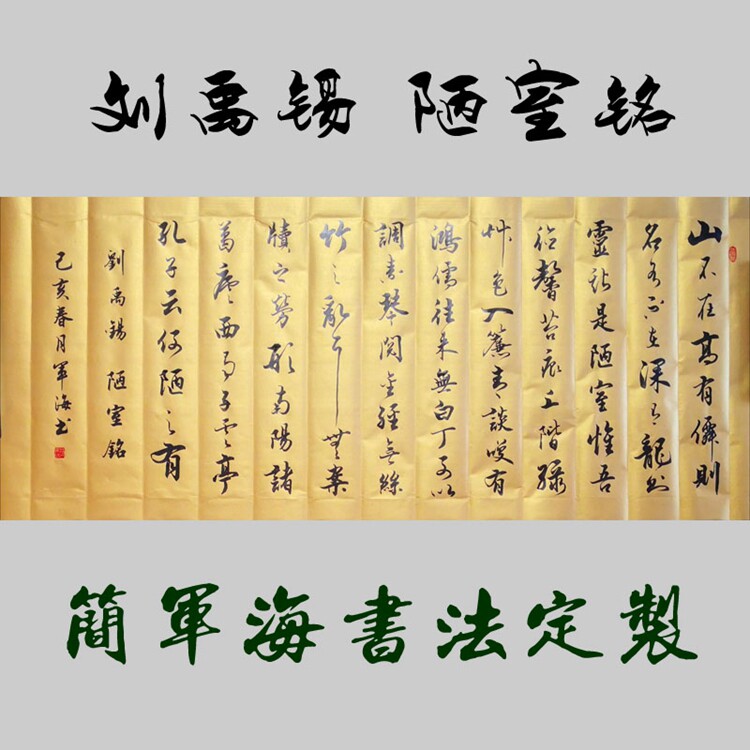 刘禹锡 陋室铭
山不在高有僊則
名水不在深有龍則
靈斯是陋室惟吾
德馨苔痕上階綠
艸色入簾青談咲有
鴻儒往来無白丁可以
調素琴閱金經無絲
竹之亂耳無案
牘之勞形南陽諸
葛廬西蜀子雲亭
孔子云何陋之有
劉禹錫 陋室銘
己亥春月軍海书
簡軍海書法定製